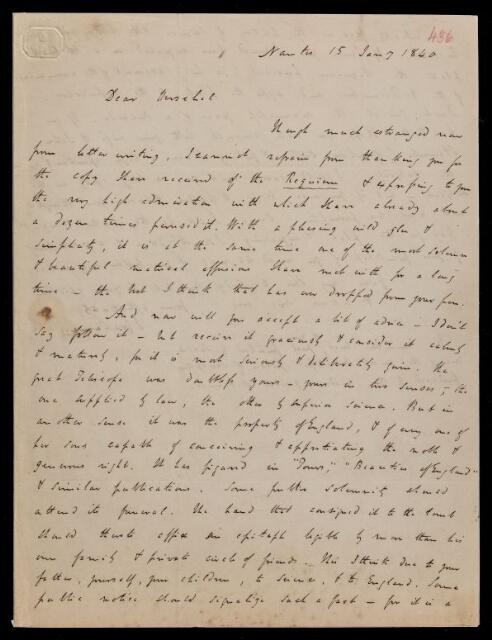 436
Nantes 15 Jany 1840
Dear Herschel
Though much estranged now
from letter writing, I cannot refrain from thanking you for
the copy I have received of the Requiem & expressing to you
the very high admiration with which I have already about
a dozen times perused it. With a pleasing wild glee &
simplicity, it is at the same time one of the most solemn
& beautiful metrical effusions I have met with for a long
time – the best I think that has ever dropped from your pen.
And now will you accept a bit of advice – I don't
say follow it – but receive it graciously & consider it calmly
& maturely, for it is most seriously & deliberately given. The
great Telescope was doubtless yours – yours in two senses; the
one supplied by law, the other by superior science. But in
another sense it was the property of England, & of every one of
her sons capable of conceiving & appreciating the noble &
generous right. It has figured in "Tours," "Beauties of England"
& similar publications. Some public solemnity should
attend its funeral. The hand that consigned it to the tomb
should thereto affix an epitaph legible by more than his
own family & private circle of friends. This I think due to your
father, yourself, your children, to science, & to England. Some
public notice should signalize such a fact – for it is a